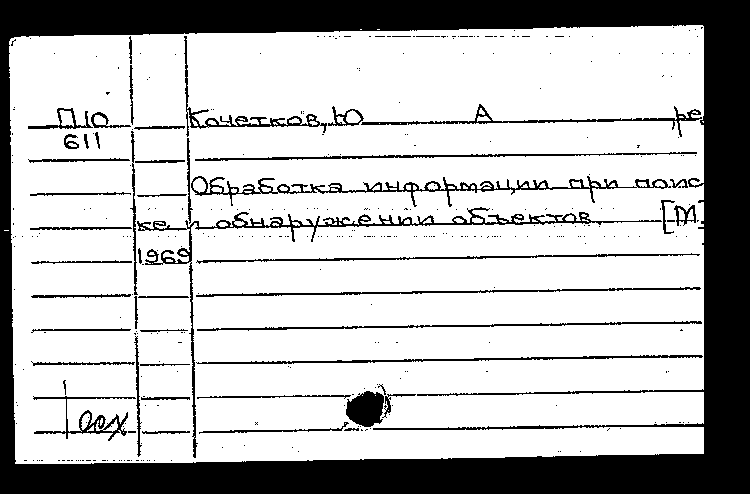 П10 Кочетков, Ю А , ре
611
Обработка информации при поис
ке и обнаружении объектов. [М]
1969